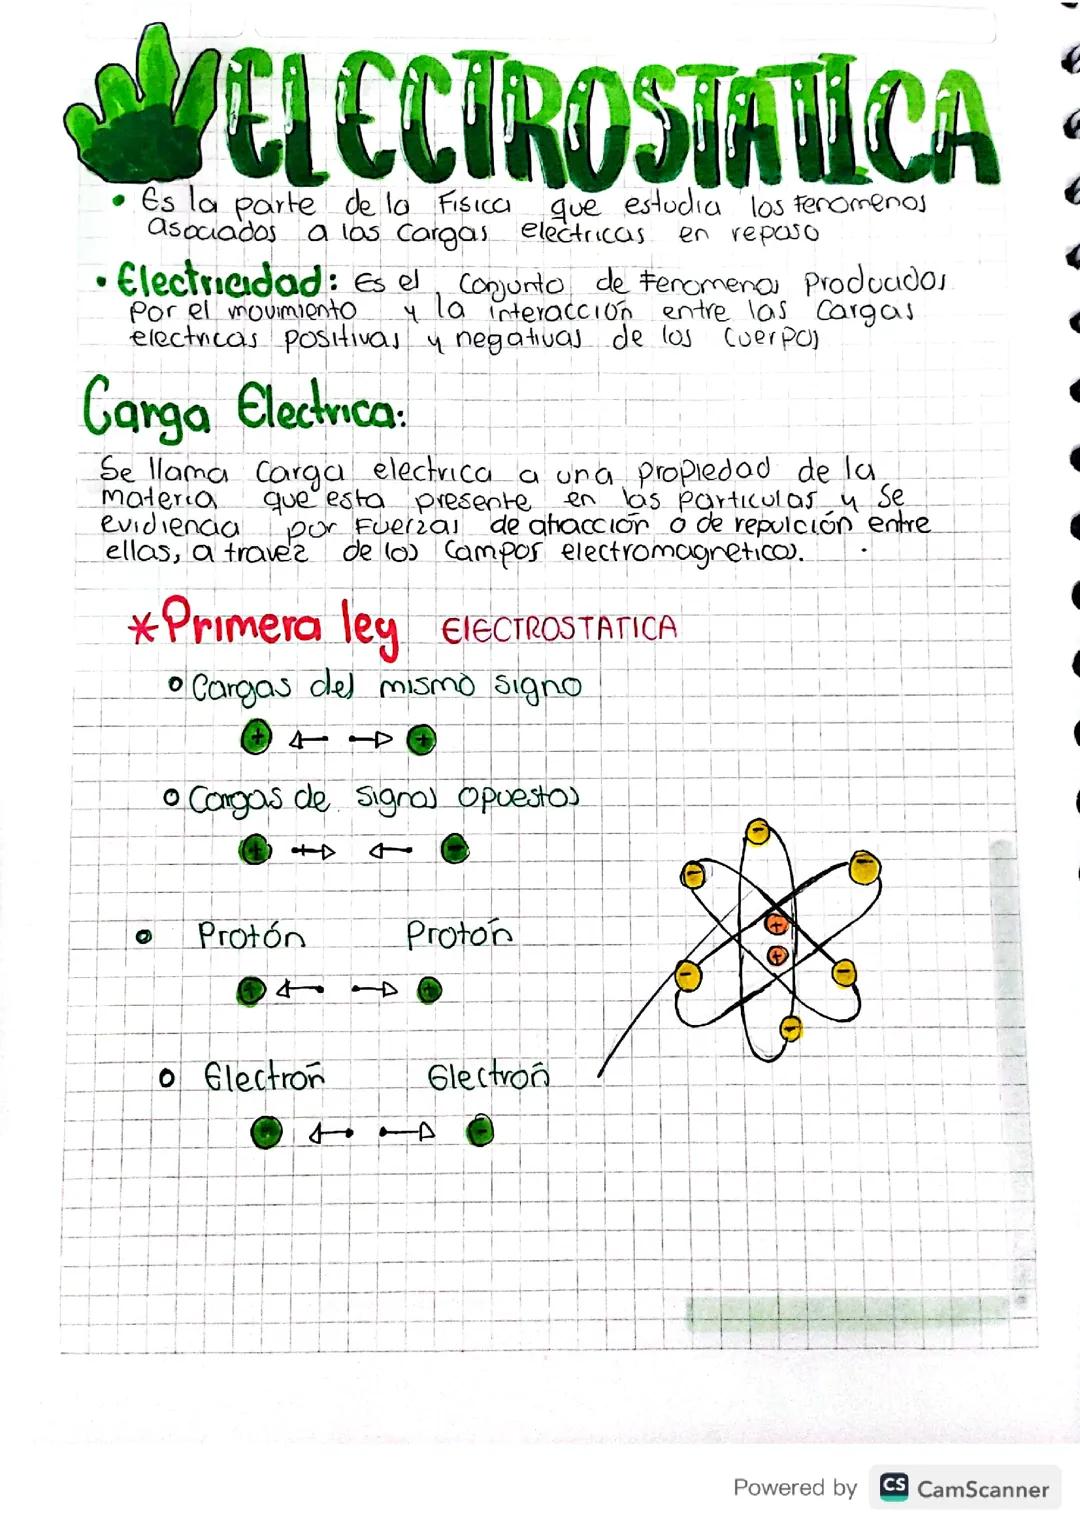 ELECTROSTATICA
• Es la parte de la Fisica que estudia los fenomenos
asociados a las cargas electricas en reposo
• Electricidad: Es el conjunto de fenomenos producidos
por el movimiento y la interacción entre las cargas
electricas positivas y negativas de los cuerpos
Carga Electrica:
Se llama carga electrica a una propiedad de la
materia que esta presente en las particulas y se
evidiencia por fuerzas de atracción o de repulción entre
ellas, a travez de los campos electromagneticos.
*Primera ley ElECTROSTATICA
Cargas del mismo signo
+ +
Cargas de signos opuestos
+ -
Protón Protón
+ +
Electrón Electrón
- -
-
- -
+
+
- -
-
Powered by CS CamScanner